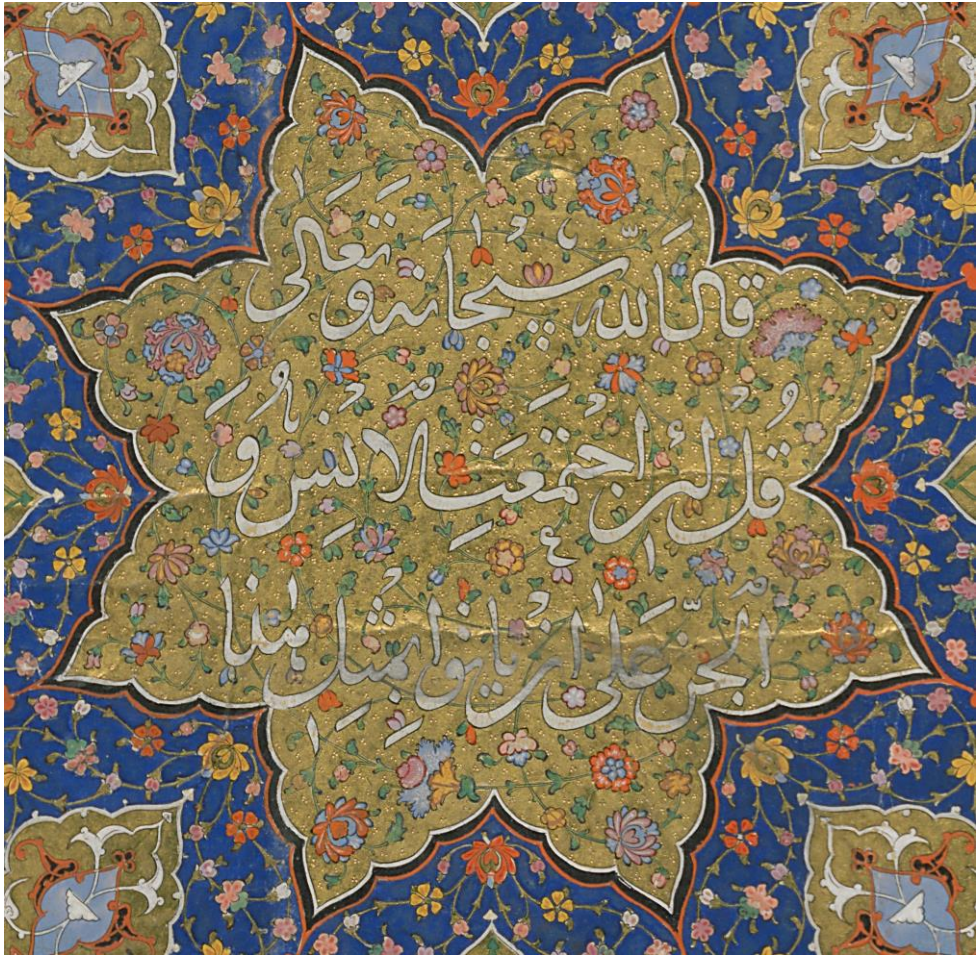 قال الله سبحانه وتعالى
قُل لئن اجْتمعَتِ الانسُ وَ
الجنّ عَلى ان ياتوا بمِثلِ هٰذا